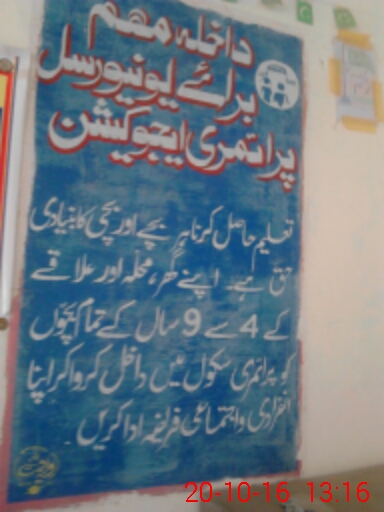 داخلہ مہم
برائے یونیورسل
پرائمری ایجوکیشن
تعلیم حاصل کرنا ہر بچے اور بچی کا بنیادی
حق ہے۔ اپنے گھر، محلہ اور علاقے
کے 4 سے 9 سال کے تمام بچوں
کو پرائمری سکول میں داخل کروا کر اپنا
انفرادی واجتماعی فریضہ ادا کریں۔
20-10-16 13:16